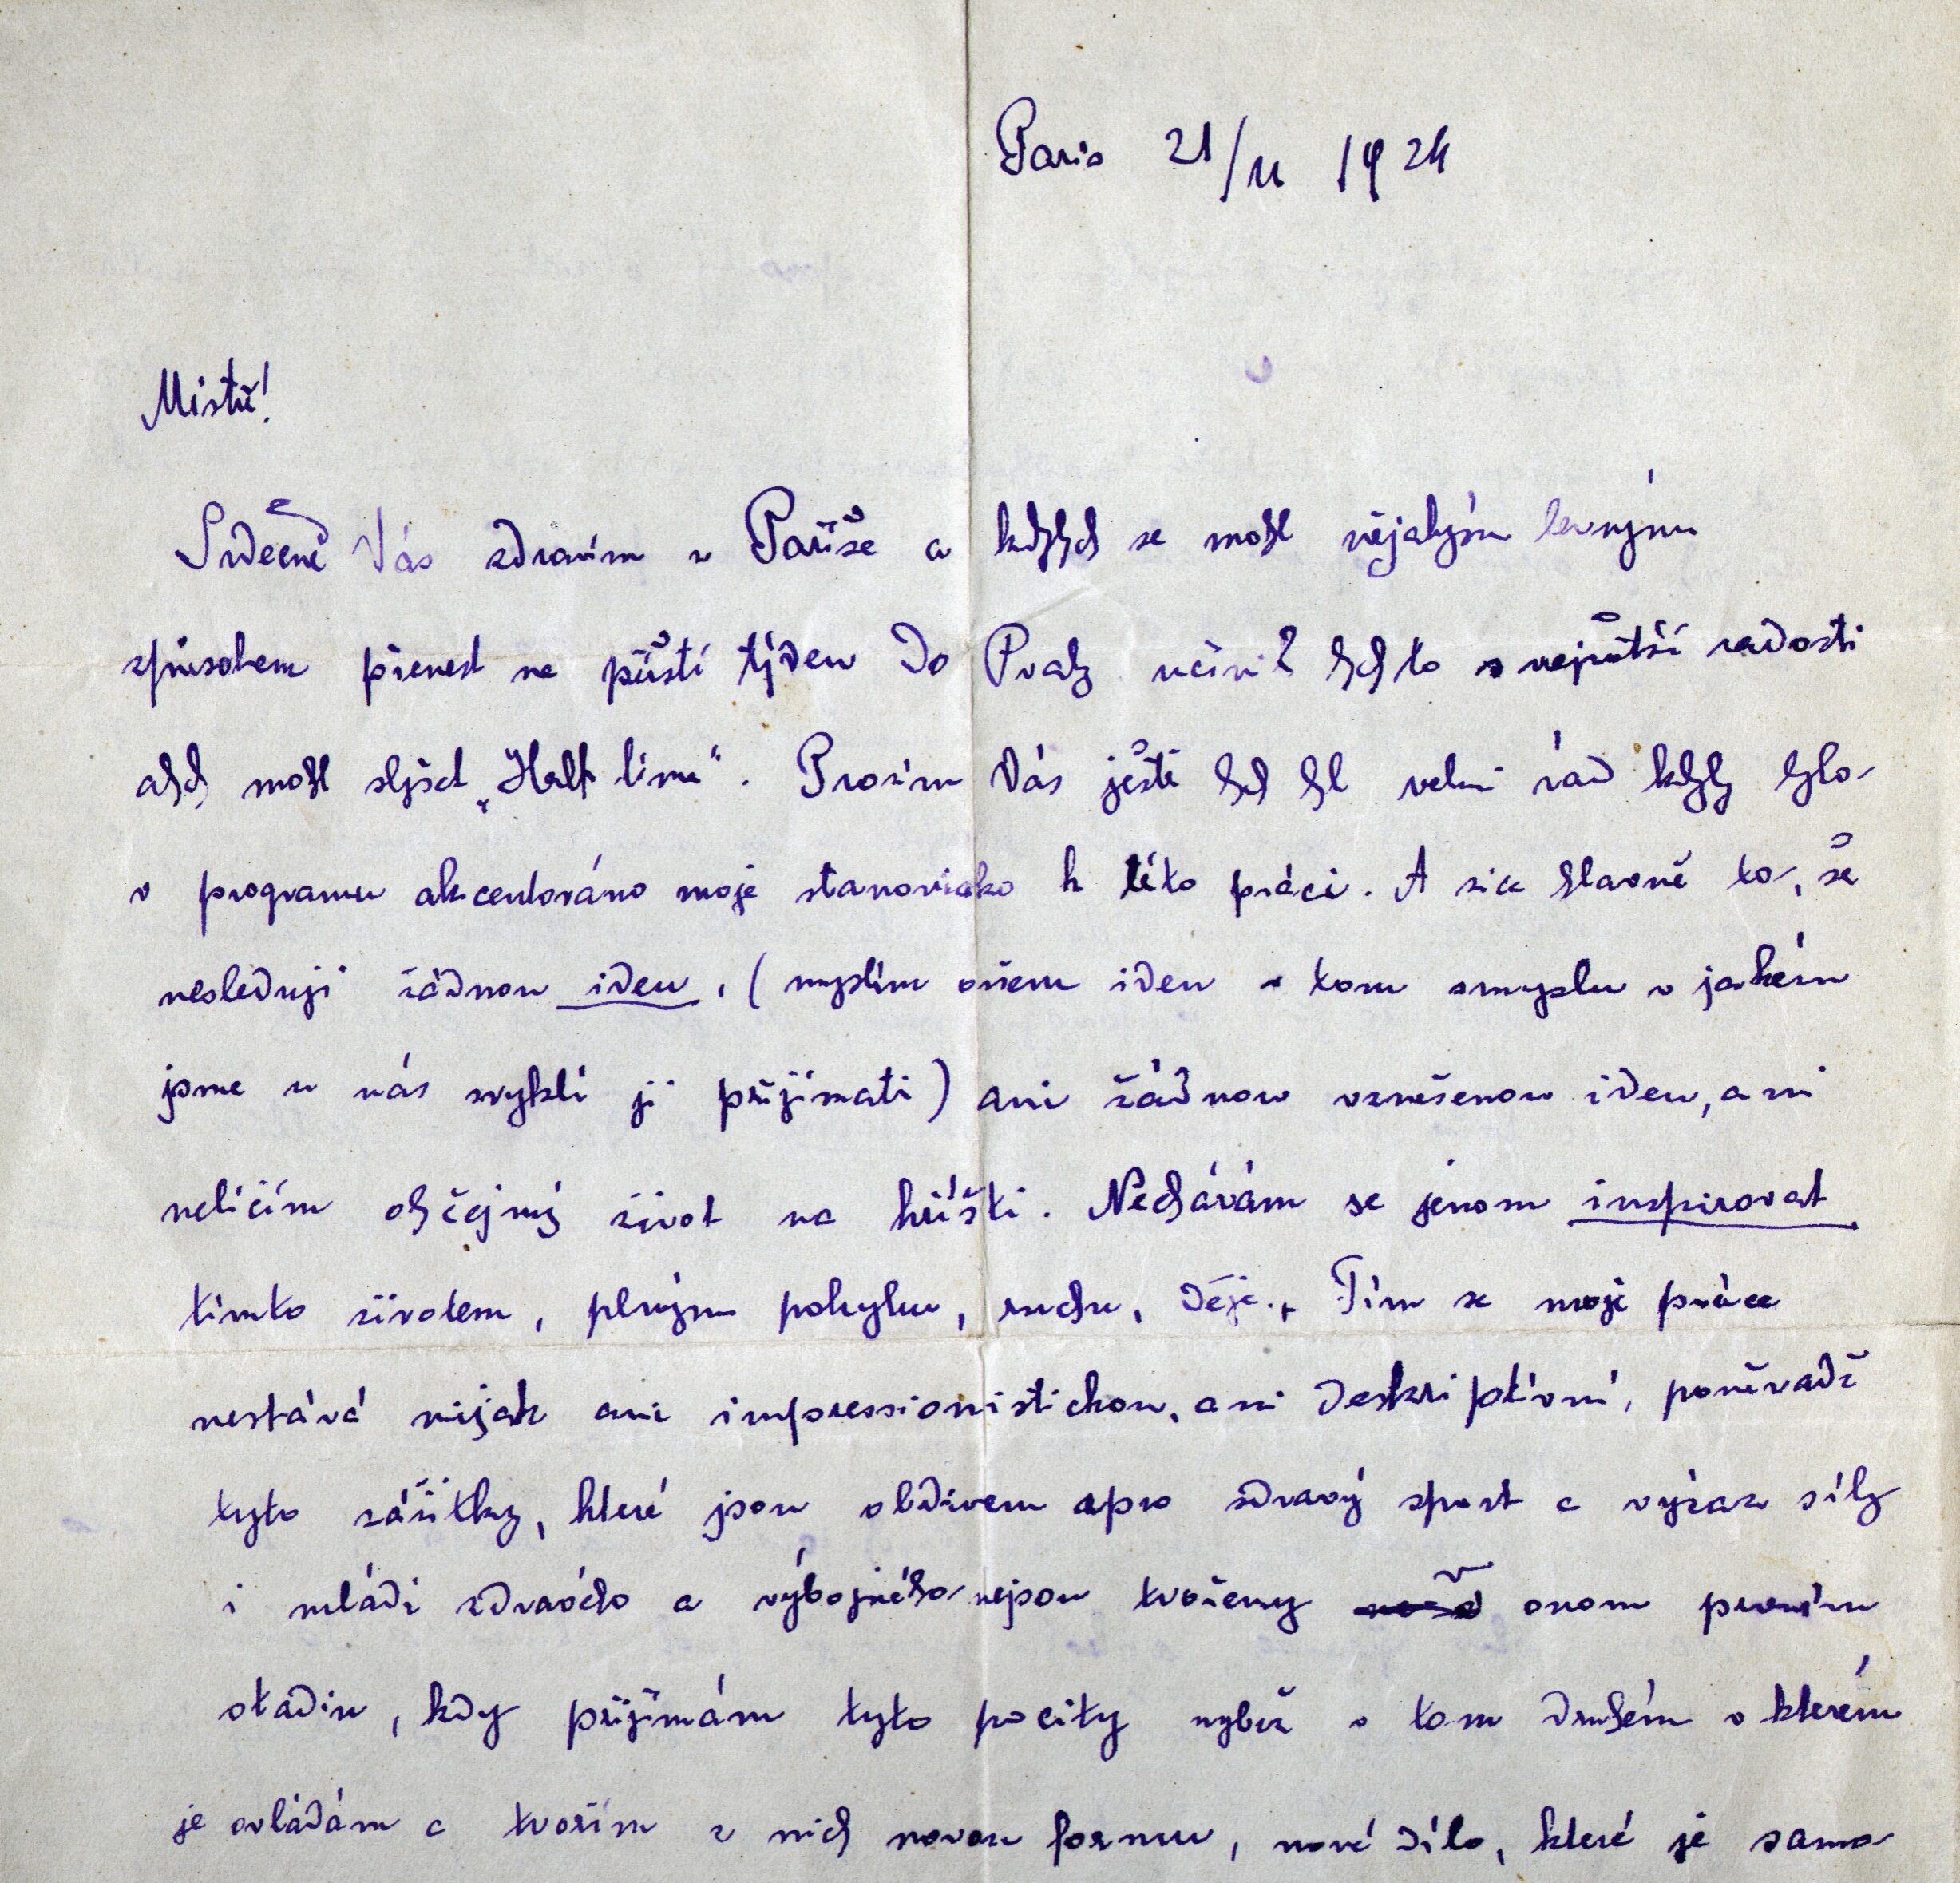 Paris 21/11 1924
Mistře!
Srdečně Vás zdravím z Paříže a kdybych se mohl nějakým levným
způsobem přenest na příští týden do Prahy učinil bych to s největší radosti
abych mohl slyšet „Half time". Prosím Vás ještě bych byl velmi rád kdyby bylo
v programu akcentováno moje stanovisko k této práci. A sice hlavně to, že
nesleduji žádnou ideu, (myslím ovšem ideu v tom smyslu v jakém
jsme u nás zvykli ji přijímati) ani žádnou vznešenou ideu, ani
nelíčím obyčejný život na hřišti. Nechávám se jenom inspirovat
tímto životem, plným pohybu, ruchu, děje. Tím se moje práce
nestává nijak ani impressionistickou, ani deskriptivní, poněvadž
tyto zážitky, které jsou obdivem pro zdravý sport a výraz síly
i mládí zdravého a výbojného nejsou tvořeny v onom prvním
stadiu, kdy přijímám tyto pocity nybrž v tom druhém v kterém
je ovládám a tvořím z nich novou formu, nové dílo, které je samo